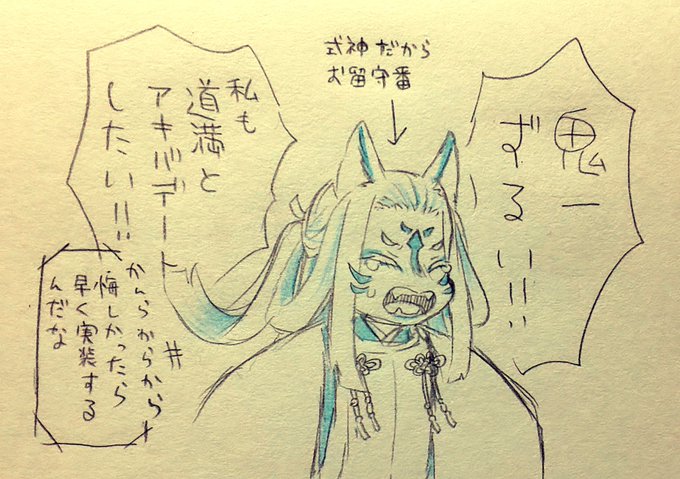 鬼一
ずるい!!
式神だから
お留守番
私も
道満と
アキバデート
したい!!
かんらからから
悔しかったら
早く実装する
んだな